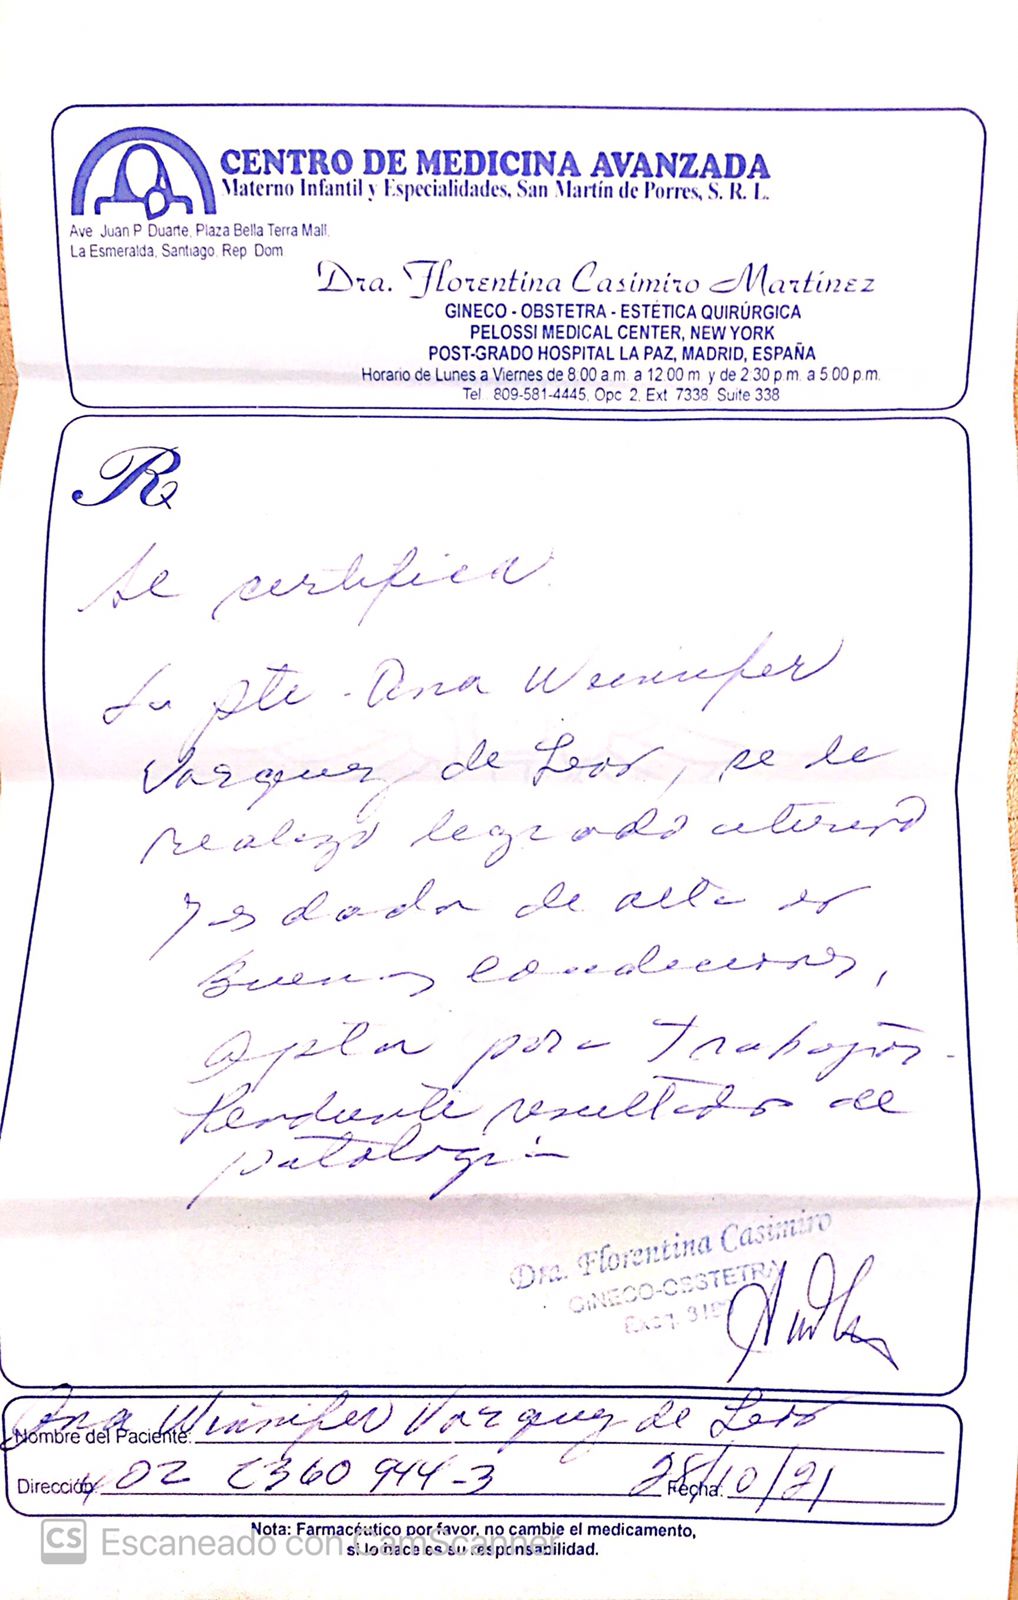 CENTRO DE MEDICINA AVANZADA
Materno Infantil y Especialidades, San Martín de Porres, S. R. L.
Ave. Juan P. Duarte, Plaza Bella Terra Mall,
La Esmeralda, Santiago, Rep. Dom
Dra. Florentina Casimiro Martínez
GINECO - OBSTETRA - ESTÉTICA QUIRÚRGICA
PELOSSI MEDICAL CENTER, NEW YORK
POST-GRADO HOSPITAL LA PAZ, MADRID, ESPAÑA
Horario de Lunes a Viernes de 8:00 a.m. a 12:00 m. y de 2:30 p.m. a 5:00 p.m.
Tel.: 809-581-4445, Opc. 2, Ext. 7338 Suite 338
Rx
Se certifica
La pte. Ana Winnifer
Varguez de Leon, se le
realizo legrado uterino
y es dada de alta en
buenas condiciones,
apta para trabajar.
Pendiente resultado de
patologia
Dra. Florentina Casimiro
GINECO-OBSTETRA
Exeq.
Ana Winnifer Varguez de Leon
Nombre del Paciente:
Dirección 402 2360 944-3 Fecha: 28/10/21
Nota: Farmacéutico por favor, no cambie el medicamento,
si lo hace es su responsabilidad.
CS Escaneado con CamScanner